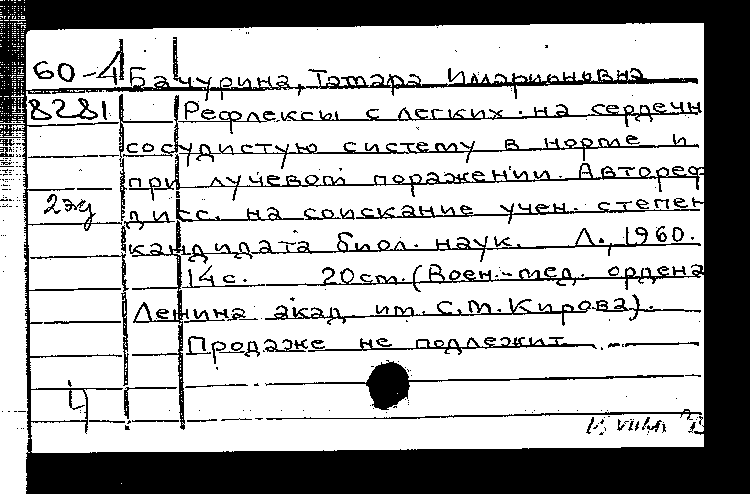 60-4 Бачурина, Тамара Илларионовна
8281 Рефлексы с легких на сердечн
сосудистую систему в норме и
при лучевом поражении. Автореф
2эд дисс. на соискание учен. степен
кандидата биол. наук. Л., 1960.
14 с. 20 см. (Воен.-мед. ордена
Ленина акад. им. С.М. Кирова).
Продаже не подлежит.